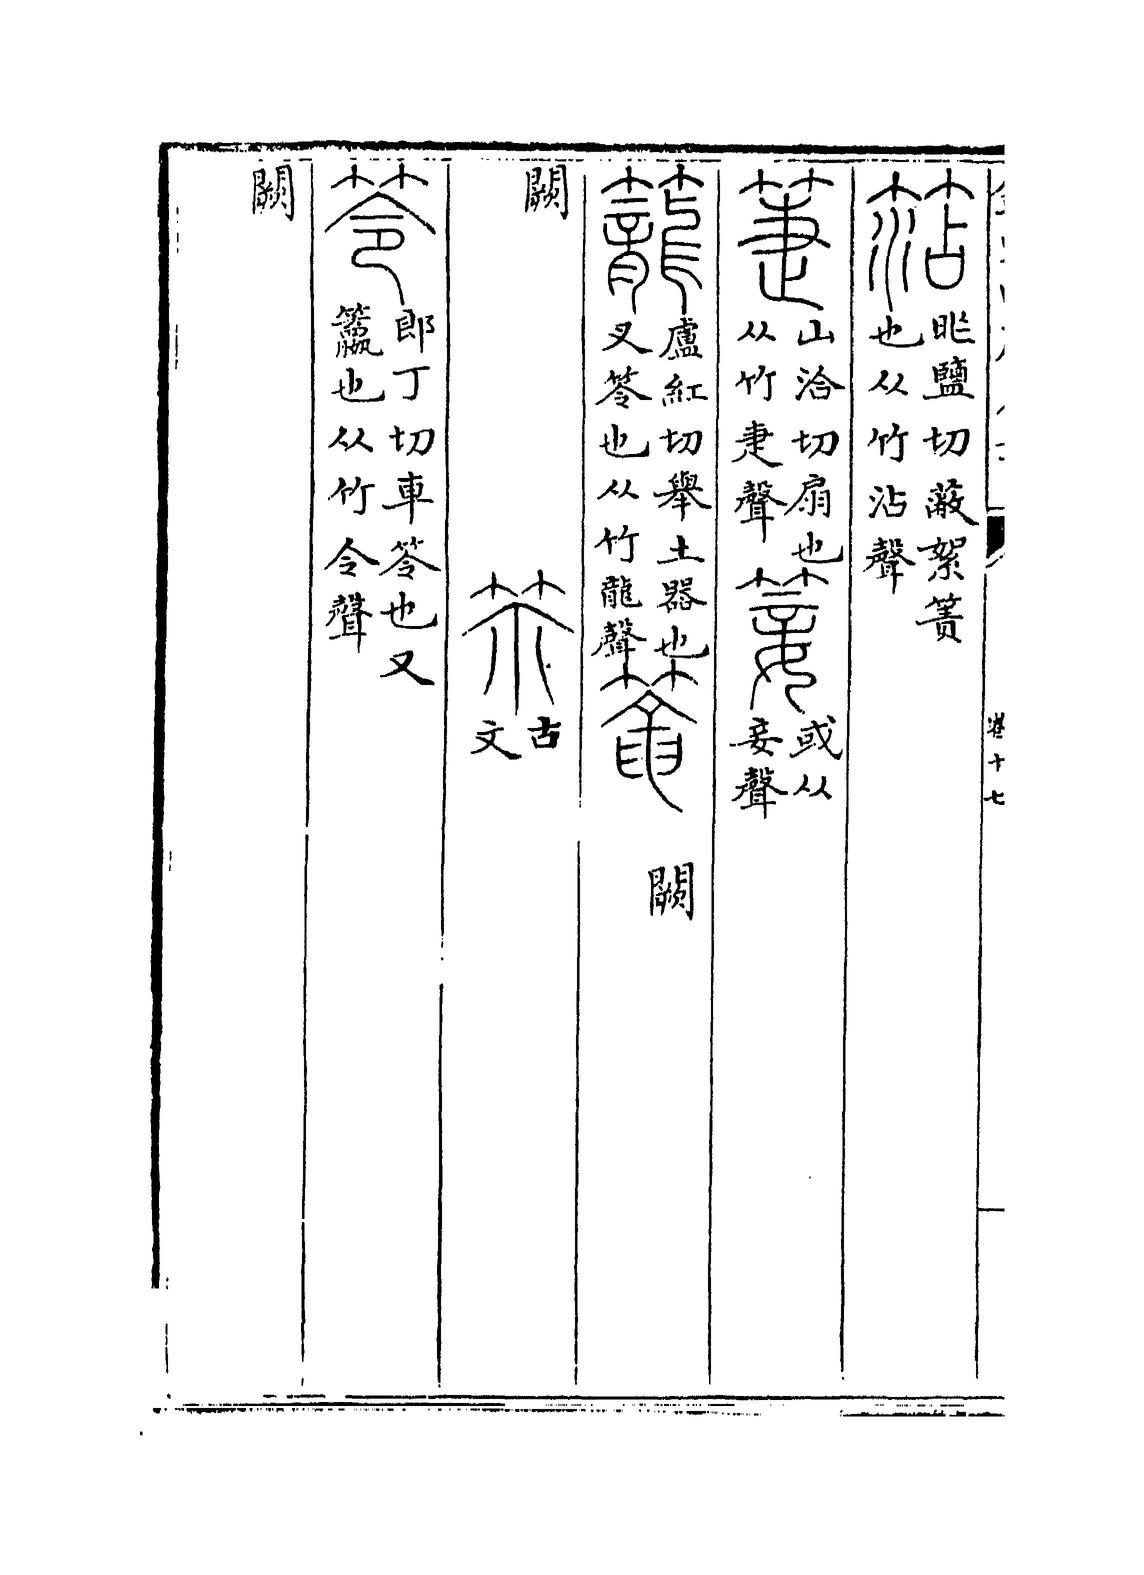 卷十七
昨鹽切蔽絮簀也从竹沾聲
箑山洽切扇也从竹疌聲 𥯦或从妾聲
籠盧紅切舉土器也又笭也从竹龍聲 闕
闕 古文
笭郎丁切車笭也又籯也从竹令聲
闕